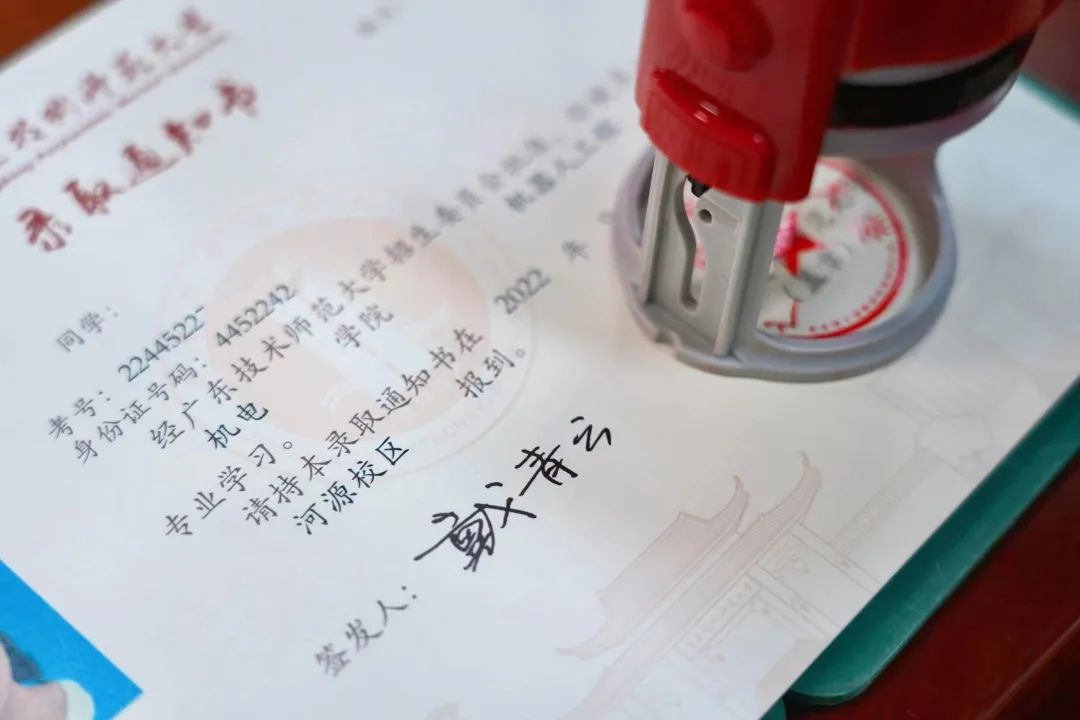 技术师范大学
录取通知书
同学：
考号：2244522-
身份证号码：4452242
经广东技术师范大学招生委员会批准，
机电 学院 机器人工程
专业学习。
请持本录取通知书在 2022 年
河源校区 报到。
签发人：戴青云